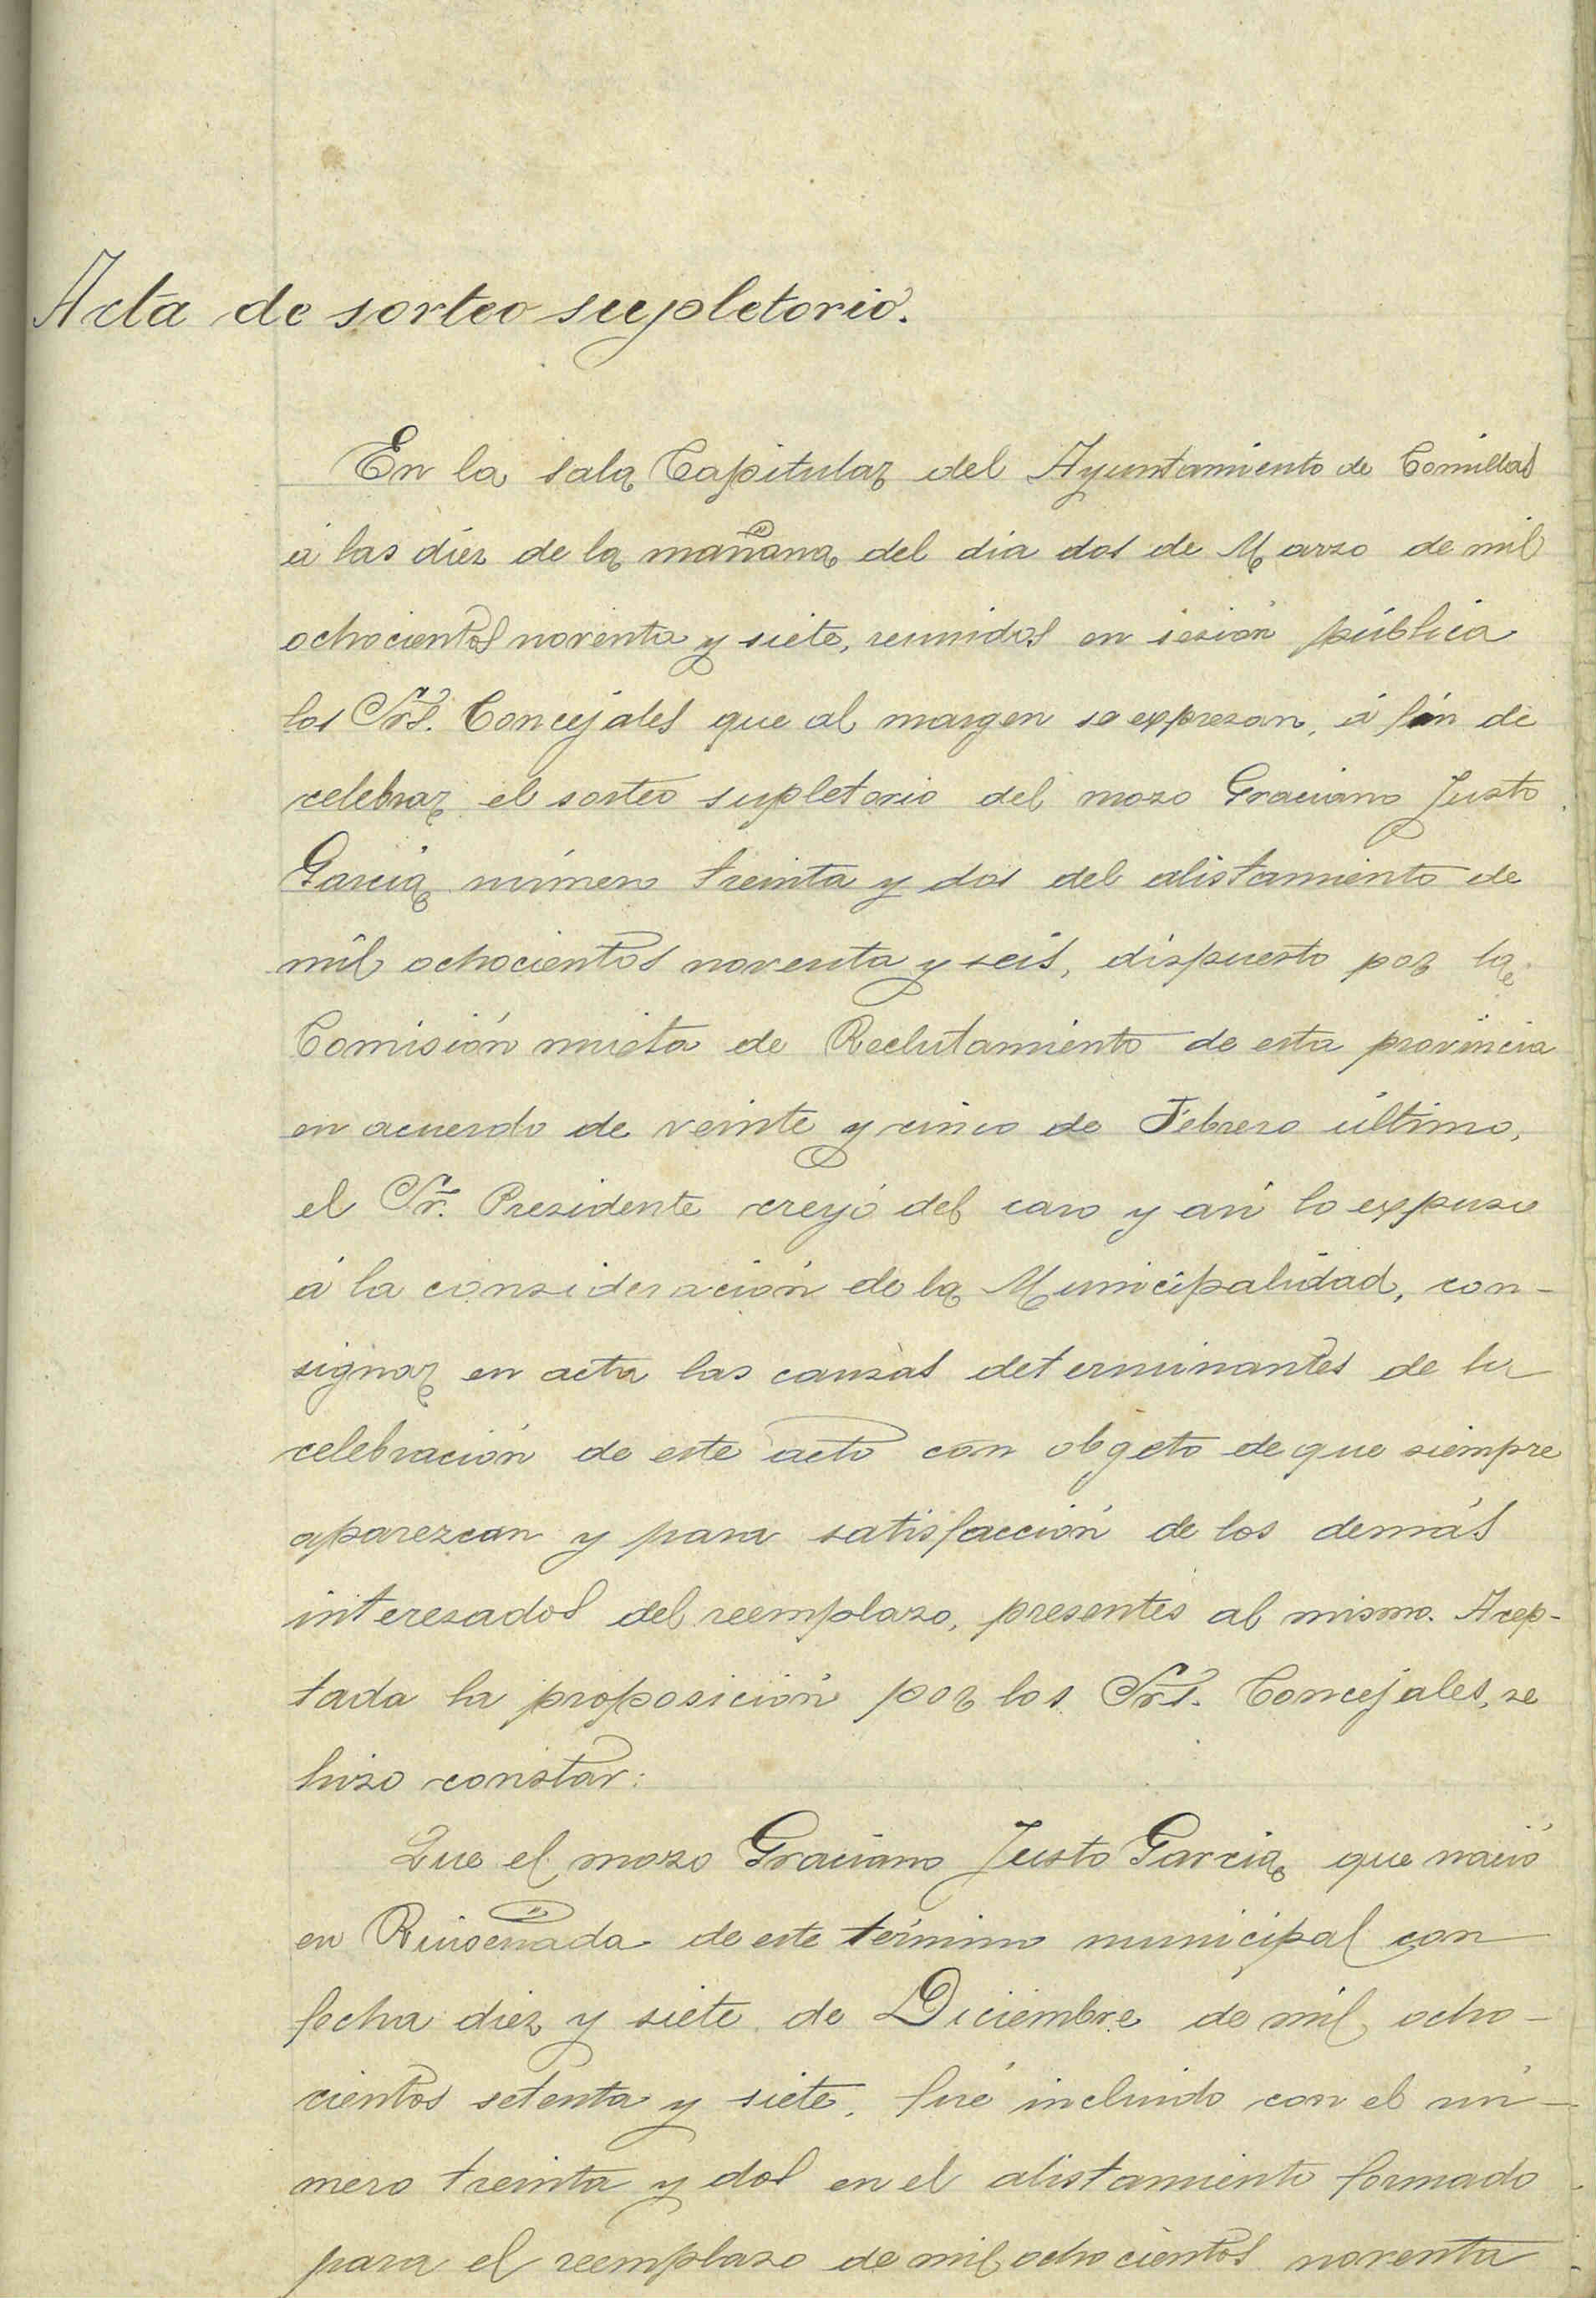 Acta de sorteo supletorio.
En la sala Capitular del Ayuntamiento de Comillas
á las diez de la mañana del dia dos de Marzo de mil
ochocientos noventa y siete, reunidos en sesión pública
los Srs. Concejales que al margen se expresan, á fin de
celebrar el sorteo supletorio del mozo Graciano Justo
Garcia número treinta y dos del alistamiento de
mil ochocientos noventa y seis, dispuesto por la
Comisión mixta de Reclutamiento de esta provincia
en acuerdo de veinte y cinco de Febrero último,
el Sr. Presidente creyó del caso y así lo expuso
á la consideración de la Municipalidad, con-
signar en acta las causas determinantes de la
celebración de este acto con objeto de que siempre
aparezcan y para satisfacción de los demás
interesados del reemplazo, presentes al mismo. Acep-
tada la proposición por los Srs. Concejales, se
hizo constar:
Que el mozo Graciano Justo Garcia que nació
en Ruiseñada de este término municipal con
fecha diez y siete de Diciembre de mil ocho-
cientos setenta y siete, fué incluido con el nú-
mero treinta y dos en el alistamiento formado
para el reemplazo de mil ochocientos noventa